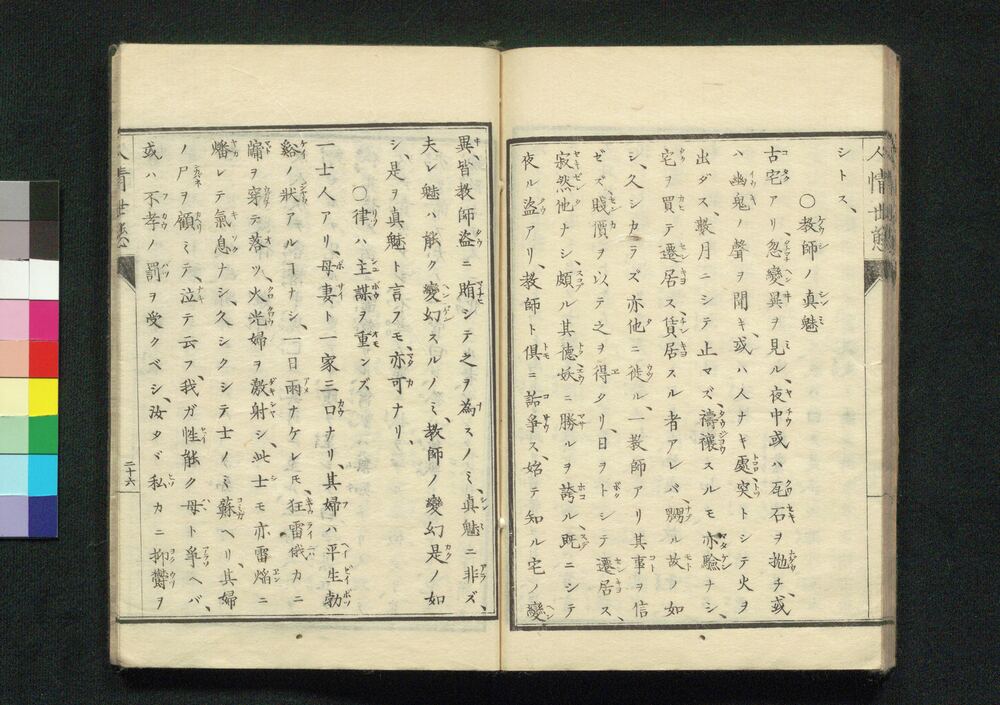 シトス、
○教師ノ真魅
古宅アリ、忽變異ヲ見ル、夜中或ハ瓦石ヲ抛チ、或
ハ幽鬼ノ聲ヲ聞キ、或ハ人ナキ處突トシテ火ヲ
出ダス、數月ニシテ止マズ、禱禳スルモ亦驗ナシ、
宅ヲ買テ遷居ス、賃居スル者アレバ、嬲ル故ノ如
シ、久シカラズ亦他ニ徙ル、一教師アリ其事ヲ信
ゼズ、賤價ヲ以テ之ヲ得タリ、日ヲトシテ遷居ス、
寂然他ナシ、頗ル其德妖ニ勝ルヲ誇ル、既ニシテ
夜ル盗アリ、教師ト俱ニ詬爭ス、始テ知ル宅ノ變
異、皆教師盗ニ賄シテ之ヲ為スノミ、真魅ニ非ズ、
夫レ魅ハ能ク變幻スルノミ、教師ノ變幻是ノ如
シ、是ヲ真魅ト言フモ、亦可ナリ、
○律ハ主謀ヲ重ンズ
一士人アリ、母妻ト一家三口ナリ其婦ハ平生勃
谿ノ狀アルヿナシ、一日雨ナケレ𪜈、狂雷俄カニ
牖ヲ穿テ落ツ、火光婦ヲ激射シ、此士モ亦雷焰ニ
燔レテ氣息ナシ、久シクシテ士ノミ蘇ヘリ、其婦
ノ尸ヲ顧ミテ、泣テ云フ、我ガ性能ク母ト爭ヘバ、
或ハ不孝ノ罰ヲ受クベシ、汝タヾ私カニ抑鬱ヲ
人情世態
二十六
人情世態